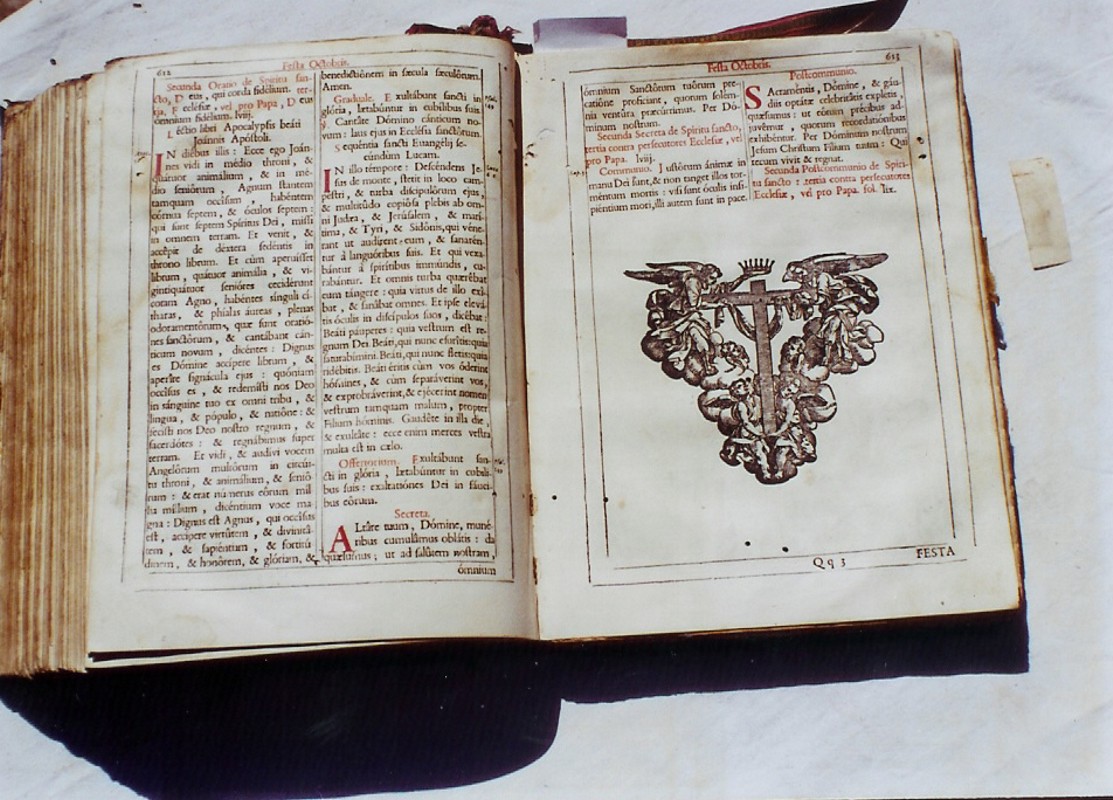 612
Festa Octobris.
Secunda Oratio de Spiritu san-
cto, D eus, qui corda fidélium. ter-
tia, Ecclesiæ, vel pro Papa, D eus
ómnium fidélium. lviij.
Léctio libri Apocalypsis beáti
Joánnis Apóstoli.
IN diébus illis: Ecce ego Joán-
nes vidi in médio throni, &
quátuor animálium, & in mé-
dio seniórum, Agnum stantem
tamquam occísum, habéntem
córnua septem, & óculos septem:
qui sunt septem Spíritus Dei, missi
in omnem terram. Et venit, &
accépit de déxtera sedéntis in
throno librum. Et cùm aperuísset
librum, quátuor animália, & vi-
gintiquátuor senióres cecidérunt
coram Agno, habéntes sínguli cí-
tharas, & phíalas áureas, plenas
odoramentórum, quæ sunt oratió-
nes sanctórum, & cantábant cán-
ticum novum, dicéntes: Dignus
es Dómine accípere librum, &
aperíre signácula ejus: quóniam
occísus es, & redemísti nos Deo
in sánguine tuo ex omni tribu, &
lingua, & pópulo, & natióne: &
fecísti nos Deo nostro regnum, &
sacerdótes: & regnábimus super
terram. Et vidi, & audívi vocem
Angelórum multórum in circúi-
tu throni, & animálium, & senió-
rum: & erat númerus eórum míl-
lia míllium, dicéntium voce ma-
gna: Dignus est Agnus, qui occísus
est, accípere virtútem, & divinitá-
tem, & sapiéntiam, & fortitú-
dinem, & honórem, & glóriam, &
benedictiónem in sǽcula sæculórum.
Amen.
Graduale. Exultábunt sancti in
glória, lætabúntur in cubílibus suis
℣. Cantáte Dómino cánticum no-
vum: laus ejus in Ecclésia sanctórum.
Sequéntia sancti Evangélij se-
cúndum Lucam.
IN illo témpore: Descéndens Je-
sus de monte, stetit in loco cam-
péstri, & turba discipulórum ejus,
& multitúdo copiósa plebis ab om-
ni Judǽa, & Jerúsalem, & marí-
tima, & Tyri, & Sidónis, qui véne-
rant ut audírent eum, & sanarén-
tur à languóribus suis. Et qui vexa-
bántur à spirítibus immúndis, cu-
rabántur. Et omnis turba quærébat
eum tángere: quia virtus de illo exí-
bat, & sanábat omnes. Et ipse elevá-
tis óculis in discípulos suos, dicébat:
Beáti páuperes: quia vestrum est re-
gnum Dei Beáti, qui nunc esurítis: quia
saturabímini. Beáti, qui nunc fletis: quia
ridébitis. Beáti éritis cùm vos óderint
hómines, & cùm separáverint vos,
& exprobráverint, & ejécerint nomen
vestrum tamquam malum, propter
Fílium hóminis. Gaudéte in illa die,
& exultáte: ecce enim merces vestra
multa est in cælo.
Offertorium. Exultábunt san-
cti in glória, lætabúntur in cubíli-
bus suis: exaltatiónes Dei in fáuci-
bus eórum.
Secreta.
ALtáre tuum, Dómine, muné-
ribus cumulámus oblátis: da
quǽsumus; ut ad salútem nostram,
ómnium
Festa Octobris.
613
ómnium Sanctórum tuórum pre-
catióne profíciant, quorum solém-
nia ventúra præcúrrimus. Per Dó-
minum nostrum.
Secunda Secreta de Spiritu sancto,
tertia contra persecutores Ecclesiæ, vel
pro Papa. lviij.
Communio. Justórum ánimæ in
manu Dei sunt, & non tanget illos tor-
méntum mortis: visi sunt óculis insi-
piéntium mori, illi autem sunt in pace.
Postcommunio.
SAcraméntis, Dómine, & gáu-
diis optátæ celebritátis explétis
quǽsumus: ut eórum précibus ad-
juvémur, quorum recordatiónibus
exhibéntur. Per Dóminum nostrum
Jesum Christum Fílium tuum: Qui
tecum vivit & regnat.
Secunda Postcommunio de Spiri-
tu sancto: tertia contra persecutores
Ecclesiæ, vel pro Papa. fol. lix.
Qq 3
FESTA